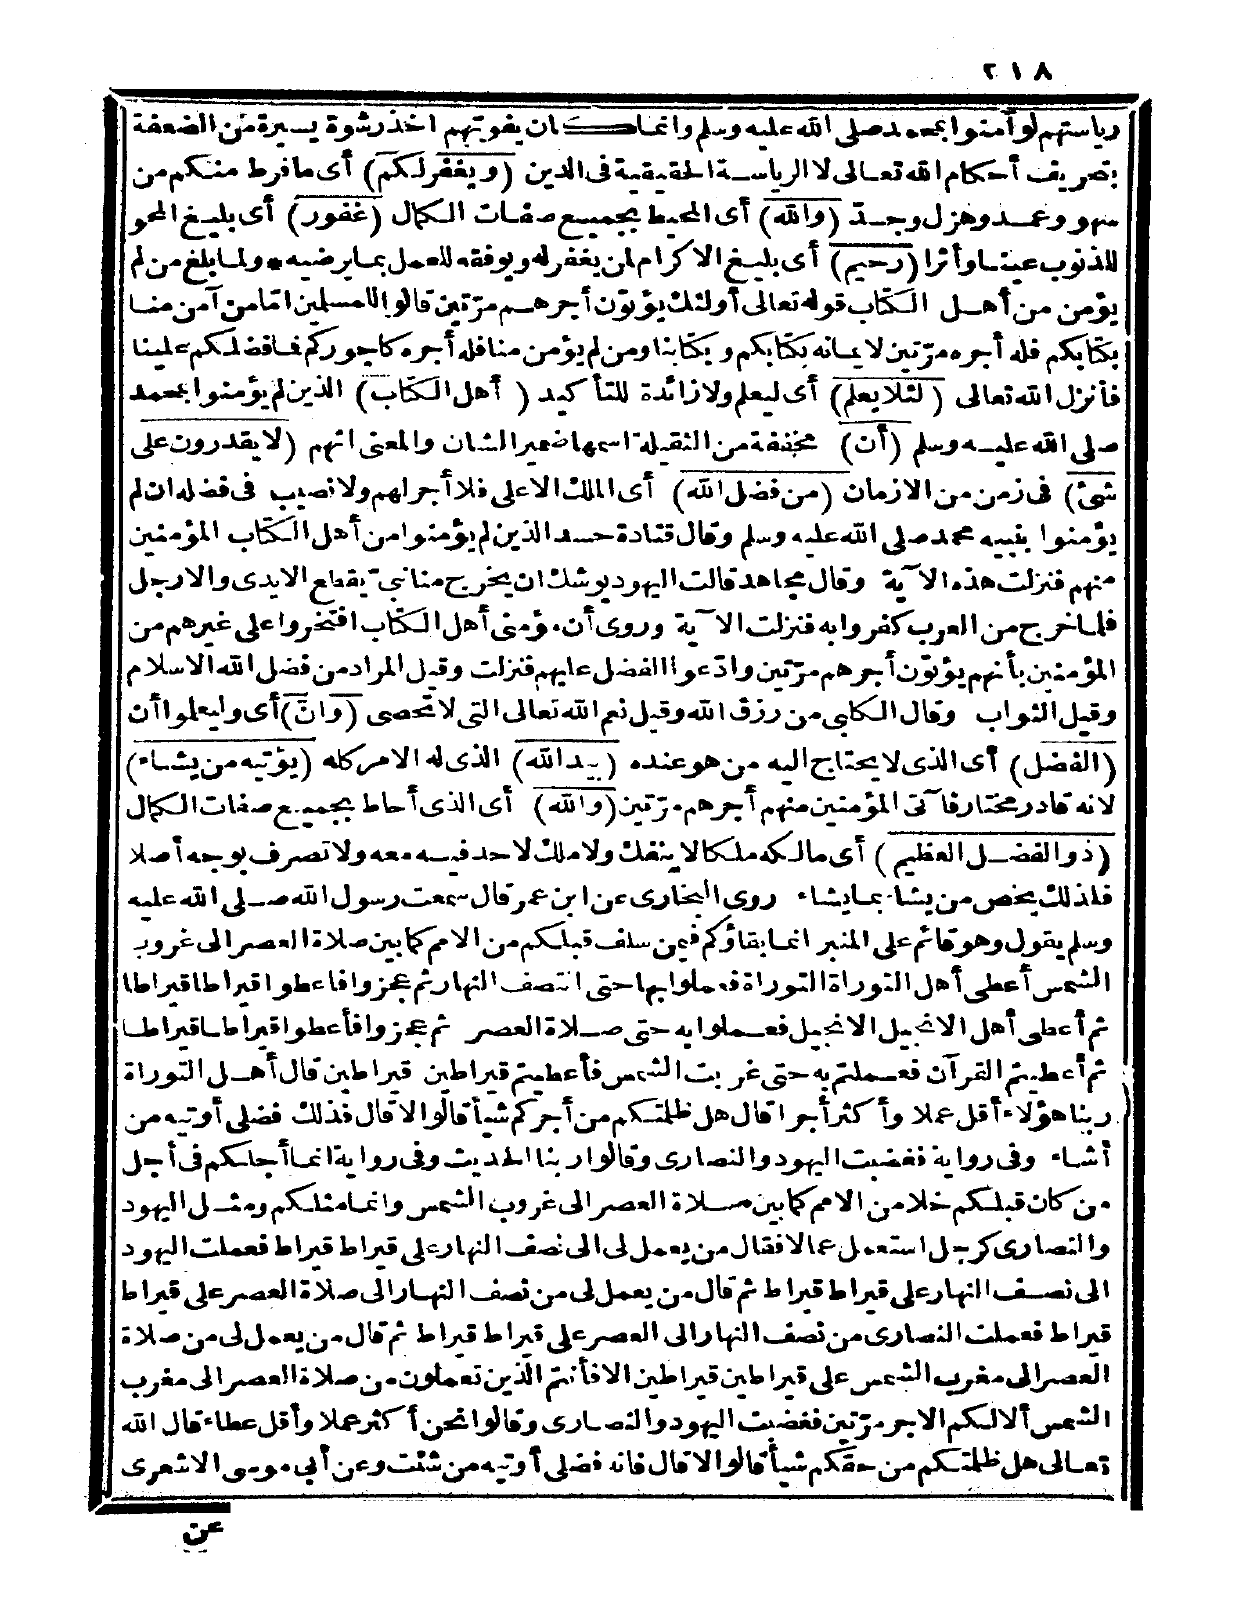 ٢١٨
رياستهم لو آمنوا بمحمد صلى الله عليه وسلم وانما كان يفوتهم اخذ رشوة يسيرة من الضعفة
بتحريف أحكام الله تعالى لا الرياسة الحقيقية فى الدين (ويغفر لكم) أى ما فرط منكم من
سهو وعمد وهزل وجد (والله) أى المحيط بجميع صفات الكمال (غفور) أى بليغ المحو
للذنوب عينا وأثرا (رحيم) أى بليغ الاكرام لمن يغفر له ويوفقه للعمل بما يرضيه * ولما بلغ من لم
يؤمن من أهل الكتاب قوله تعالى أولئك يؤتون أجرهم مرّتين قالوا للمسلمين امّا من آمن منا
بكتابكم فله أجره مرّتين لايمانه بكتابكم وبكتابنا ومن لم يؤمن منا فله أجره كاجوركم فما فضلكم علينا
فأنزل الله تعالى (لئلا يعلم) أى ليعلم ولا زائدة للتأكيد (أهل الكتاب) الذين لم يؤمنوا بمحمد
صلى الله عليه وسلم (أن) مخففة من الثقيلة اسمها ضمير الشان والمعنى انهم (لا يقدرون على
شئ) فى زمن من الازمان (من فضل الله) أى الملك الاعلى فلا أجر لهم ولا نصيب فى فضله ان لم
يؤمنوا بنبيه محمد صلى الله عليه وسلم وقال قتادة حسد الذين لم يؤمنوا من أهل الكتاب المؤمنين
منهم فنزلت هذه الآية وقال مجاهد قالت اليهود يوشك ان يخرج منا نبيّ يقطع الايدى والارجل
فلما خرج من العرب كفروا به فنزلت الآية وروى أن مؤمنى أهل الكتاب افتخروا على غيرهم من
المؤمنين بأنهم يؤتون أجرهم مرّتين وادّعوا الفضل عليهم فنزلت وقيل المراد من فضل الله الاسلام
وقيل الثواب وقال الكلبى من رزق الله وقيل نعم الله تعالى التى لا تحصى (وانّ) أى وليعلموا أن
(الفضل) أى الذى لا يحتاج اليه من هو عنده (بيد الله) الذى له الامر كله (يؤتيه من يشاء)
لانه قادر مختار فآتى المؤمنين منهم أجرهم مرّتين (والله) أى الذى أحاط بجميع صفات الكمال
(ذو الفضل العظيم) أى مالكه ملكا لا ينفك ولا ملك لاحد فيه معه ولا تصرف بوجه أصلا
فلذلك يخص من يشاء بما يشاء روى البخارى عن ابن عمر قال سمعت رسول الله صلى الله عليه
وسلم يقول وهو قائم على المنبر انما بقاؤكم فيمن سلف قبلكم من الامم كما بين صلاة العصر الى غروب
الشمس أعطى أهل التوراة التوراة فعملوا بها حتى انتصف النهار ثم عجزوا فاعطوا قيراطا قيراطا
ثم أعطى أهل الانجيل الانجيل فعملوا به حتى صلاة العصر ثم عجزوا فأعطوا قيراطا قيراطا
ثم أعطيتم القرآن فعملتم به حتى غربت الشمس فأعطيتم قيراطين قيراطين قال أهل التوراة
ربنا هؤلاء أقل عملا وأكثر أجرا قال هل ظلمتكم من أجركم شيأ قالوا لا قال فذلك فضلى أوتيه من
أشاء وفى رواية فغضبت اليهود والنصارى وقالوا ربنا الحديث وفى رواية انما أجلكم فى أجل
من كان قبلكم خلا من الامم كما بين صلاة العصر الى غروب الشمس وانما مثلكم ومثل اليهود
والنصارى كرجل استعمل عمالا فقال من يعمل لى الى نصف النهار على قيراط قيراط فعملت اليهود
الى نصف النهار على قيراط قيراط ثم قال من يعمل لى من نصف النهار الى صلاة العصر على قيراط
قيراط فعملت النصارى من نصف النهار الى العصر على قيراط قيراط ثم قال من يعمل لى من صلاة
العصر الى مغرب الشمس على قيراطين قيراطين الا فأنتم الذين تعملون من صلاة العصر الى مغرب
الشمس ألا لكم الاجر مرّتين فغضبت اليهود والنصارى وقالوا نحن أكثر عملا وأقل عطاء قال الله
تعالى هل ظلمتكم من حقكم شيأ قالوا لا قال فانه فضلى أوتيه من شئت وعن أبى موسى الاشعرى
عن